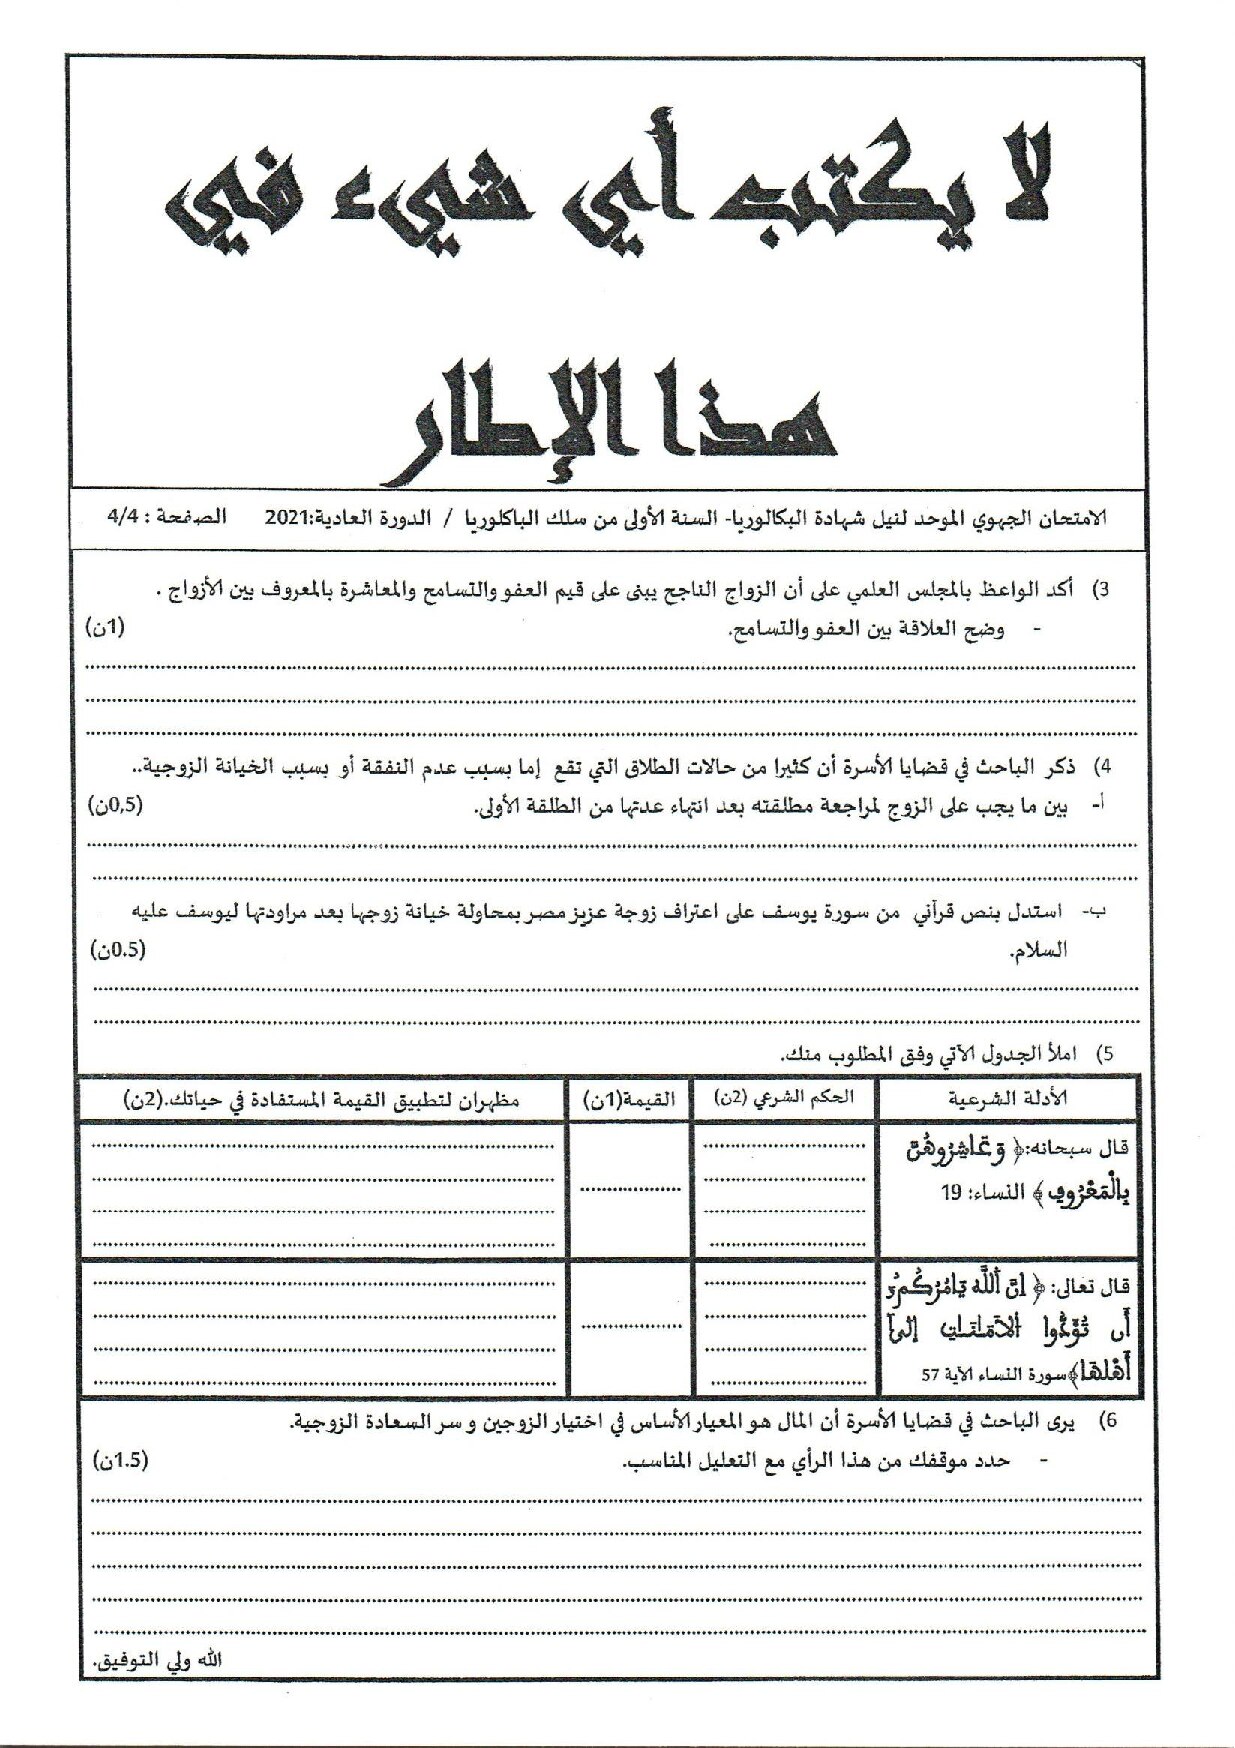 لا يكتب أي شيء في
هذا الإطار
الامتحان الجهوي الموحد لنيل شهادة البكالوريا- السنة الأولى من سلك الباكلوريا / الدورة العادية:2021 الصفحة : 4/4
3) أكد الواعظ بالمجلس العلمي على أن الزواج الناجح يبنى على قيم العفو والتسامح والمعاشرة بالمعروف بين الأزواج .
- وضح العلاقة بين العفو والتسامح. (1ن)
4) ذكر الباحث في قضايا الأسرة أن كثيرا من حالات الطلاق التي تقع إما بسبب عدم النفقة أو بسبب الخيانة الزوجية..
أ- بين ما يجب على الزوج لمراجعة مطلقته بعد انتهاء عدتها من الطلقة الأولى. (0,5ن)
ب- استدل بنص قرآني من سورة يوسف على اعتراف زوجة عزيز مصر بمحاولة خيانة زوجها بعد مراودتها ليوسف عليه
السلام. (0.5ن)
5) املأ الجدول الآتي وفق المطلوب منك.
الأدلة الشرعية الحكم الشرعي (2ن) القيمة(1ن) مظهران لتطبيق القيمة المستفادة في حياتك.(2ن)
قال سبحانه:﴿ وَعَاشِرُوهُنَّ
بِالْمَعْرُوفِ ﴾ النساء: 19
قال تعالى: ﴿ اِنَّ اَللَّهَ يَامُرُكُمُۥ
أَن تُؤَدُّوا الَامَانَاتِ إِلَىٰ
أَهْلِهَا﴾سورة النساء الآية 57
6) يرى الباحث في قضايا الأسرة أن المال هو المعيار الأساس في اختيار الزوجين و سر السعادة الزوجية.
- حدد موقفك من هذا الرأي مع التعليل المناسب. (1.5ن)
الله ولي التوفيق.